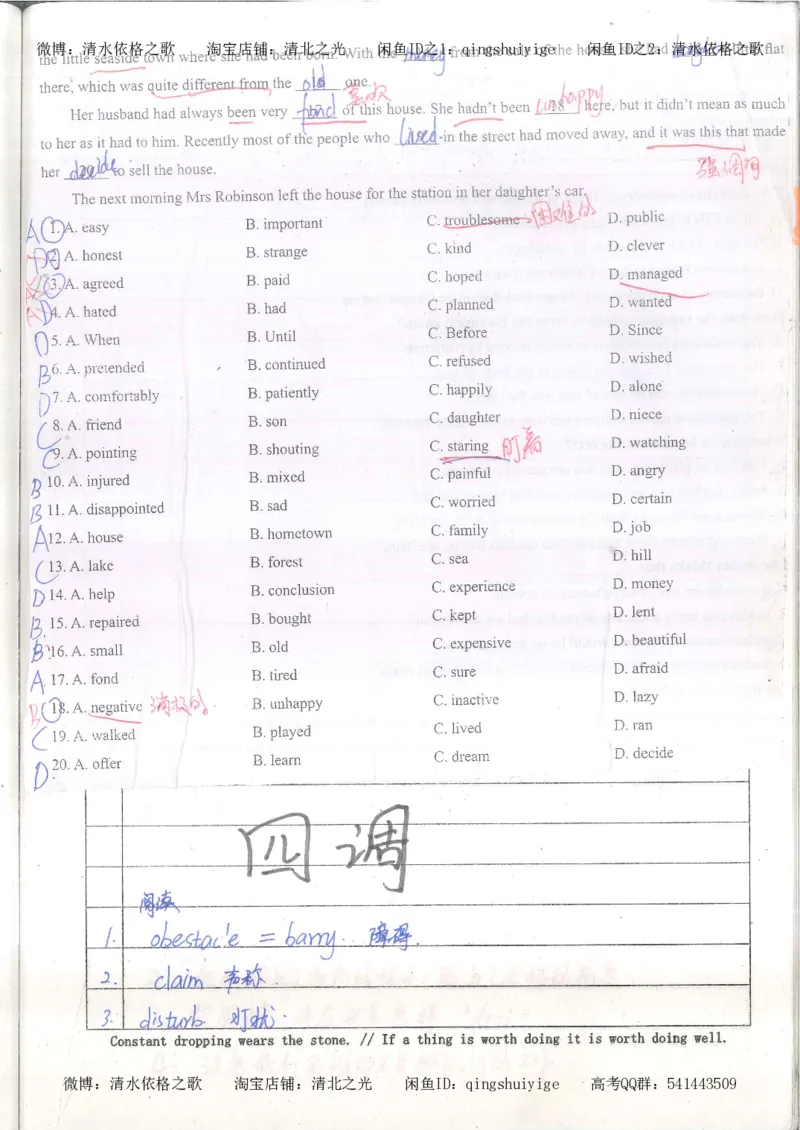 微博：清水依格之歌 淘宝店铺：清北之光 闲鱼ID之1：qingshuiyige 闲鱼ID之2：清水依格之歌
the little seaside town where she had been born. With the money from the sale of the house, she had bought a flat
there, which was quite different from the old one.
喜欢
Her husband had always been very fond of this house. She hadn't been unhappy here, but it didn't mean as much
to her as it had to him. Recently most of the people who lived in the street had moved away, and it was this that made
her decide to sell the house.
强调句
The next morning Mrs Robinson left the house for the station in her daughter's car.
A 1. A. easy B. important C. troublesome 困难的 D. public
2. A. honest B. strange C. kind D. clever
3. A. agreed B. paid C. hoped D. managed
4. A. hated B. had C. planned D. wanted
D 5. A. When B. Until C. Before D. Since
B 6. A. pretended B. continued C. refused D. wished
D 7. A. comfortably B. patiently C. happily D. alone
C 8. A. friend B. son C. daughter D. niece
C 9. A. pointing B. shouting C. staring 盯着 D. watching
B 10. A. injured B. mixed C. painful D. angry
B 11. A. disappointed B. sad C. worried D. certain
A 12. A. house B. hometown C. family D. job
C 13. A. lake B. forest C. sea D. hill
D 14. A. help B. conclusion C. experience D. money
B 15. A. repaired B. bought C. kept D. lent
B 16. A. small B. old C. expensive D. beautiful
A 17. A. fond B. tired C. sure D. afraid
B 18. A. negative 消极的 B. unhappy C. inactive D. lazy
C 19. A. walked B. played C. lived D. ran
D 20. A. offer B. learn C. dream D. decide
四调
阅读
1. obestacle = barry 障碍.
2. claim 声称.
3. disturb 打扰.
Constant dropping wears the stone. // If a thing is worth doing it is worth doing well.
微博：清水依格之歌 淘宝店铺：清北之光 闲鱼ID：qingshuiyige 高考QQ群：541443509